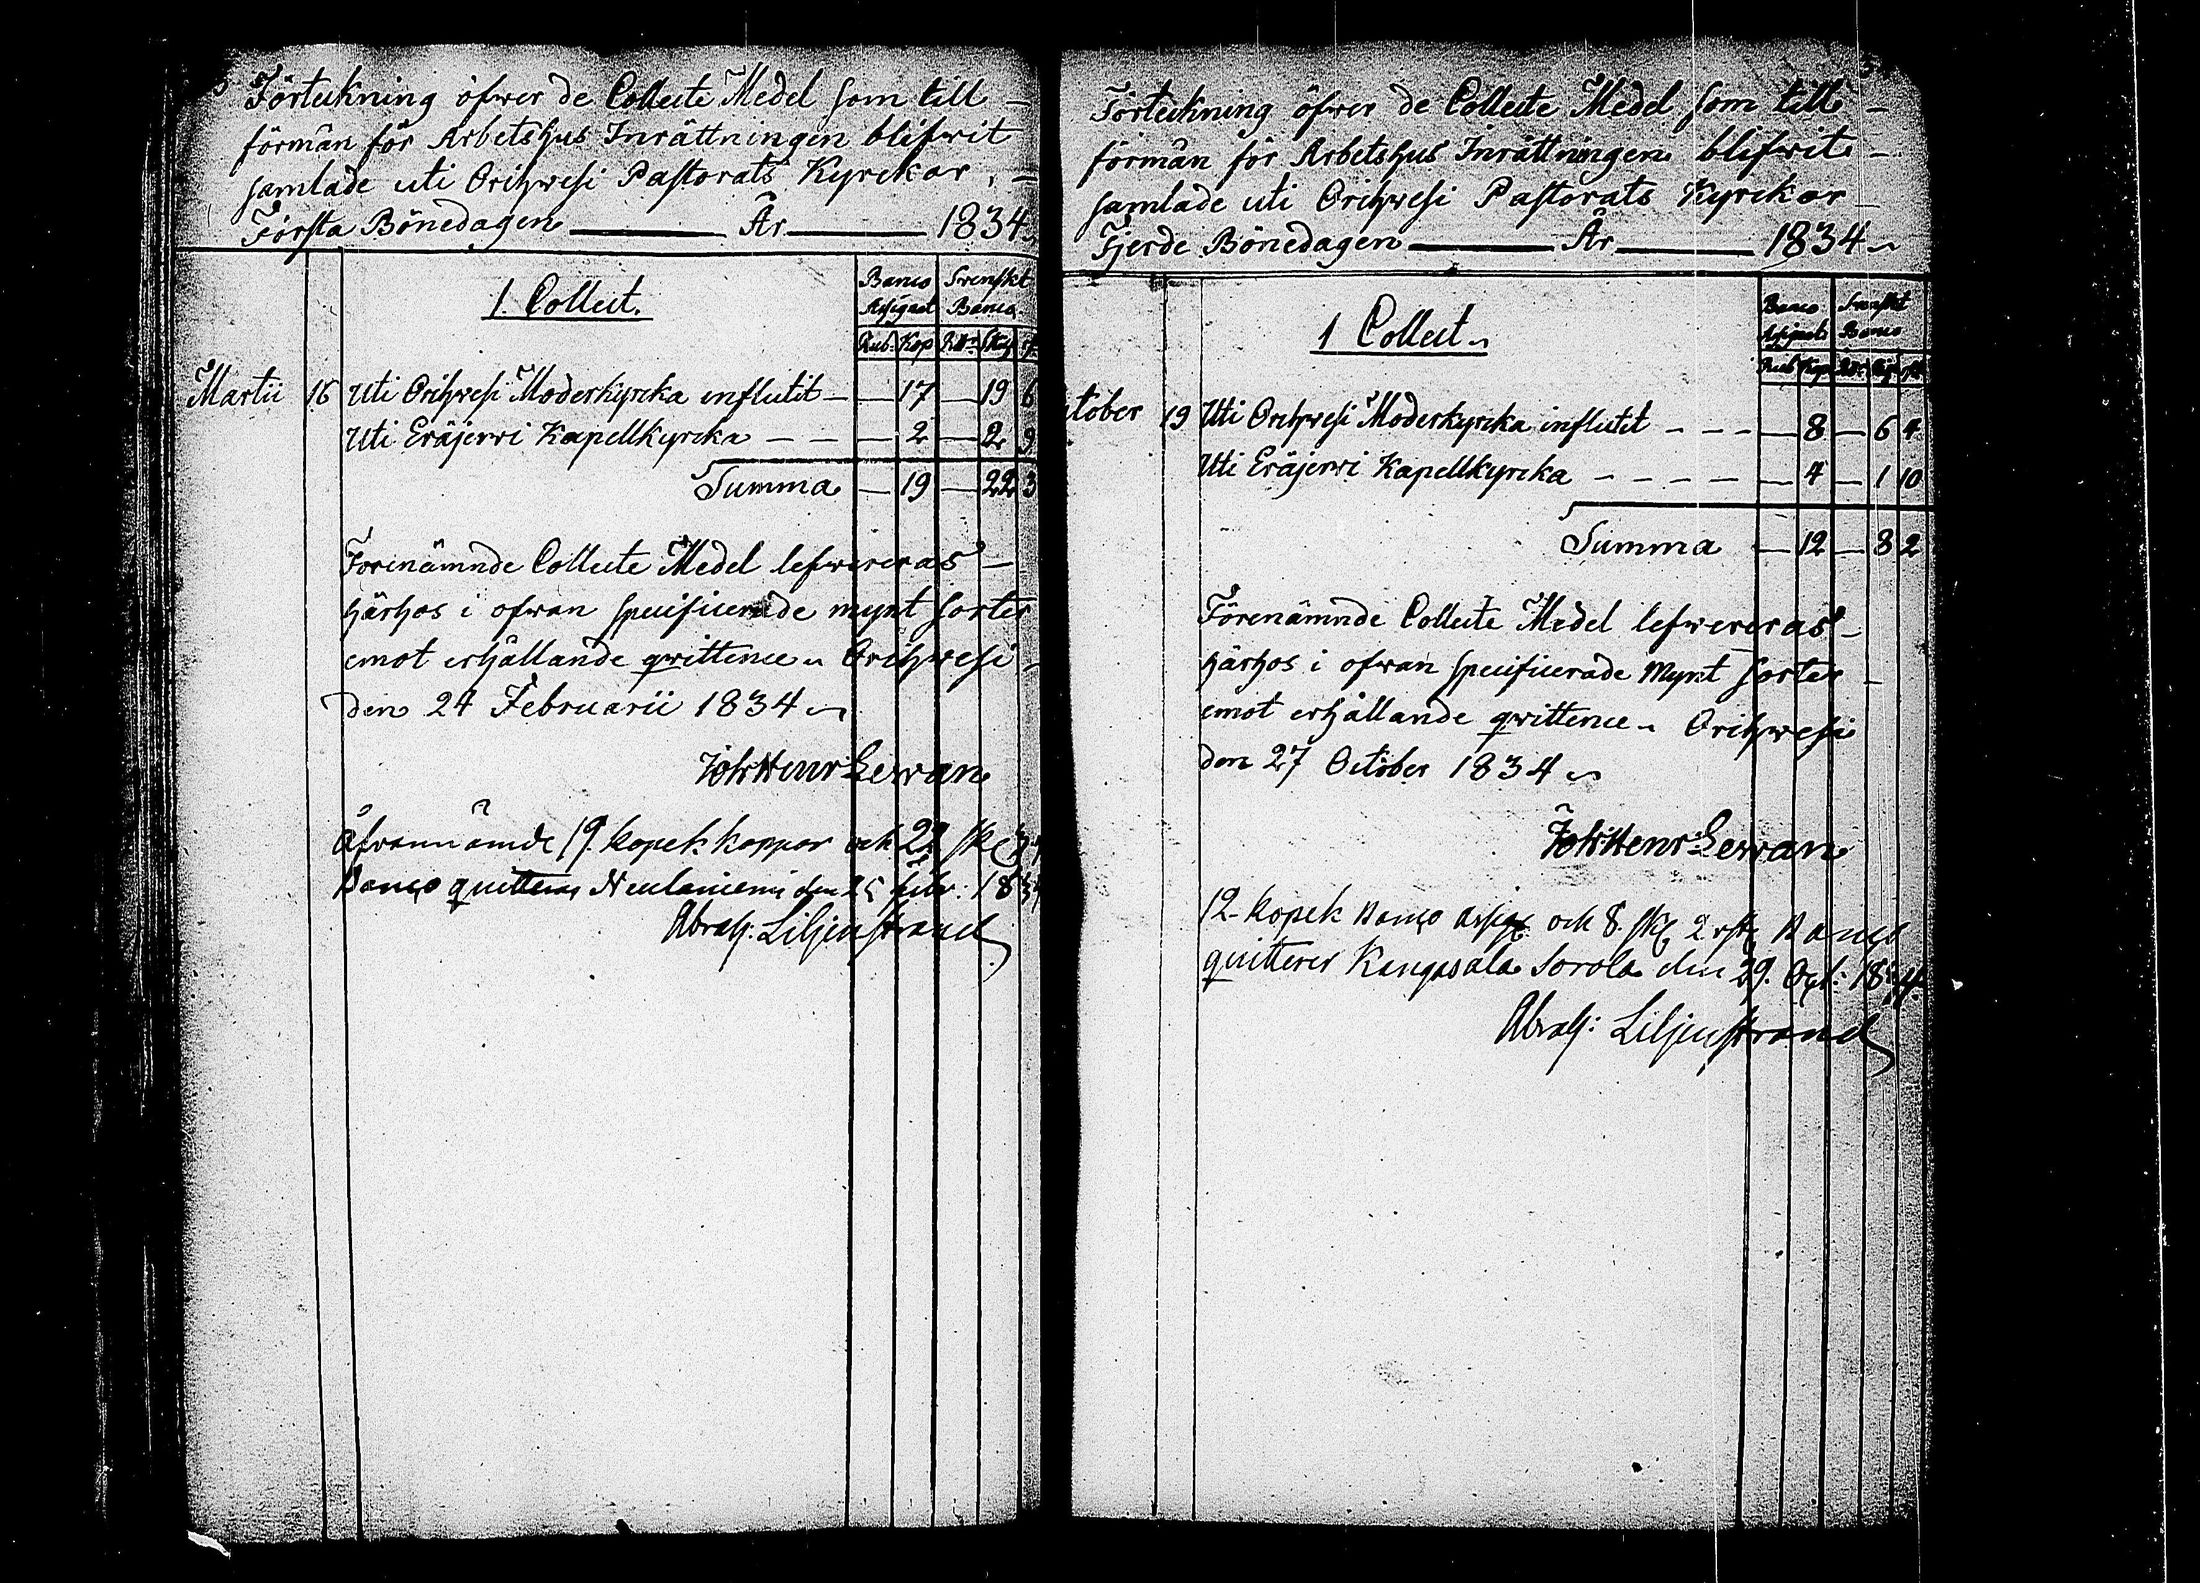 Förteckning öfwer de Collecte Medel som till-
förmån för Arbetshus Inrättningen blifwit
samlade uti Orihwesi Pastorats Kyrckor, -
Första Bönedagen ——— År ——— 1834
1. Collect.
Banco Assignat
Swenskt Banco
Rub. Kop Rdr Sk rst
Martii 16 Uti Orihwesi Moderkyrcka influtit — — 17 — 19 6
Uti Eräjerwi Kapellkyrcka — — — 2 — 2 9
Summa — 19 — 22 3
Förenämnde Collecte Medel lefwereras -
härhos i ofwan specificerade mynt sorter
emot erhållande qwittence. Orihwesi -
den 24 Februarii 1834
Joh: Henr: Lewan
Åfwannämde 19. kopek koppar och 22 sk 3 r
Banco quitteras den 25 febr: 1834
Abrah: Liljenstrand
Förteckning öfwer de Collecte Medel som till -
förmån för Arbetshus Inrättningen blifwit -
samlade uti Orihwesi Pastorats Kyrckor
Fjerde Bönedagen ——— År ——— 1834
1 Collect
Banco Assignat
Swenskt Banco
Rub Kop Rdr Sk rst
ctober 19 Uti Orihwesi Moderkyrcka influtit - - - — 8 — 6 4
Uti Eräjerwi Kapellkyrcka - - - - — 4 — 1 10
Summa — 12 — 8 2
Förenämnde Collecte Medel lefwereras -
härhos i ofwan specificerade Mynt sorter -
emot erhållande qwittence. Orihwesi
den 27 October 1834
Joh: Henr: Lewan
12 - kopek Banco assig: och 8. sk 2 rst Banco
quitterer Kangasala Sorola den 29. Oct: 1834.
Abrah: Liljenstrand